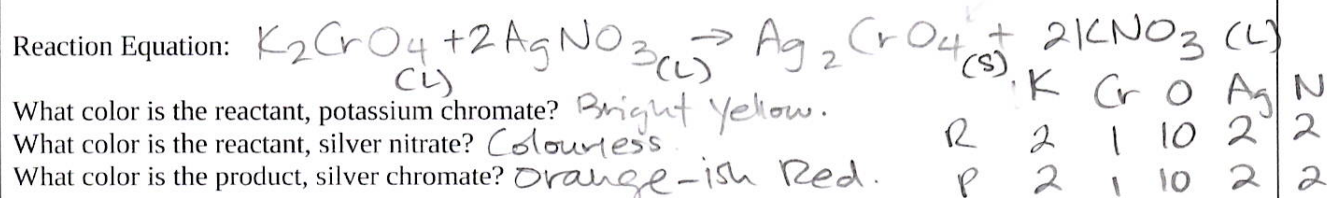 Reaction Equation: K₂CrO₄ (L) + 2AgNO₃ (L) → Ag₂CrO₄ (s) + 2KNO₃ (L)
K Cr O Ag N
What color is the reactant, potassium chromate? Bright Yellow.
What color is the reactant, silver nitrate? Colourless.
R 2 1 10 2 2
What color is the product, silver chromate? Orange-ish Red.
P 2 1 10 2 2